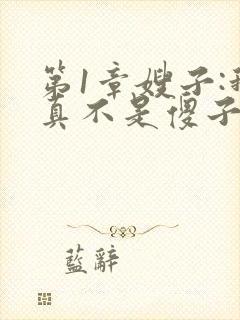 第1章嫂子:我
真不是傻子
藍辭